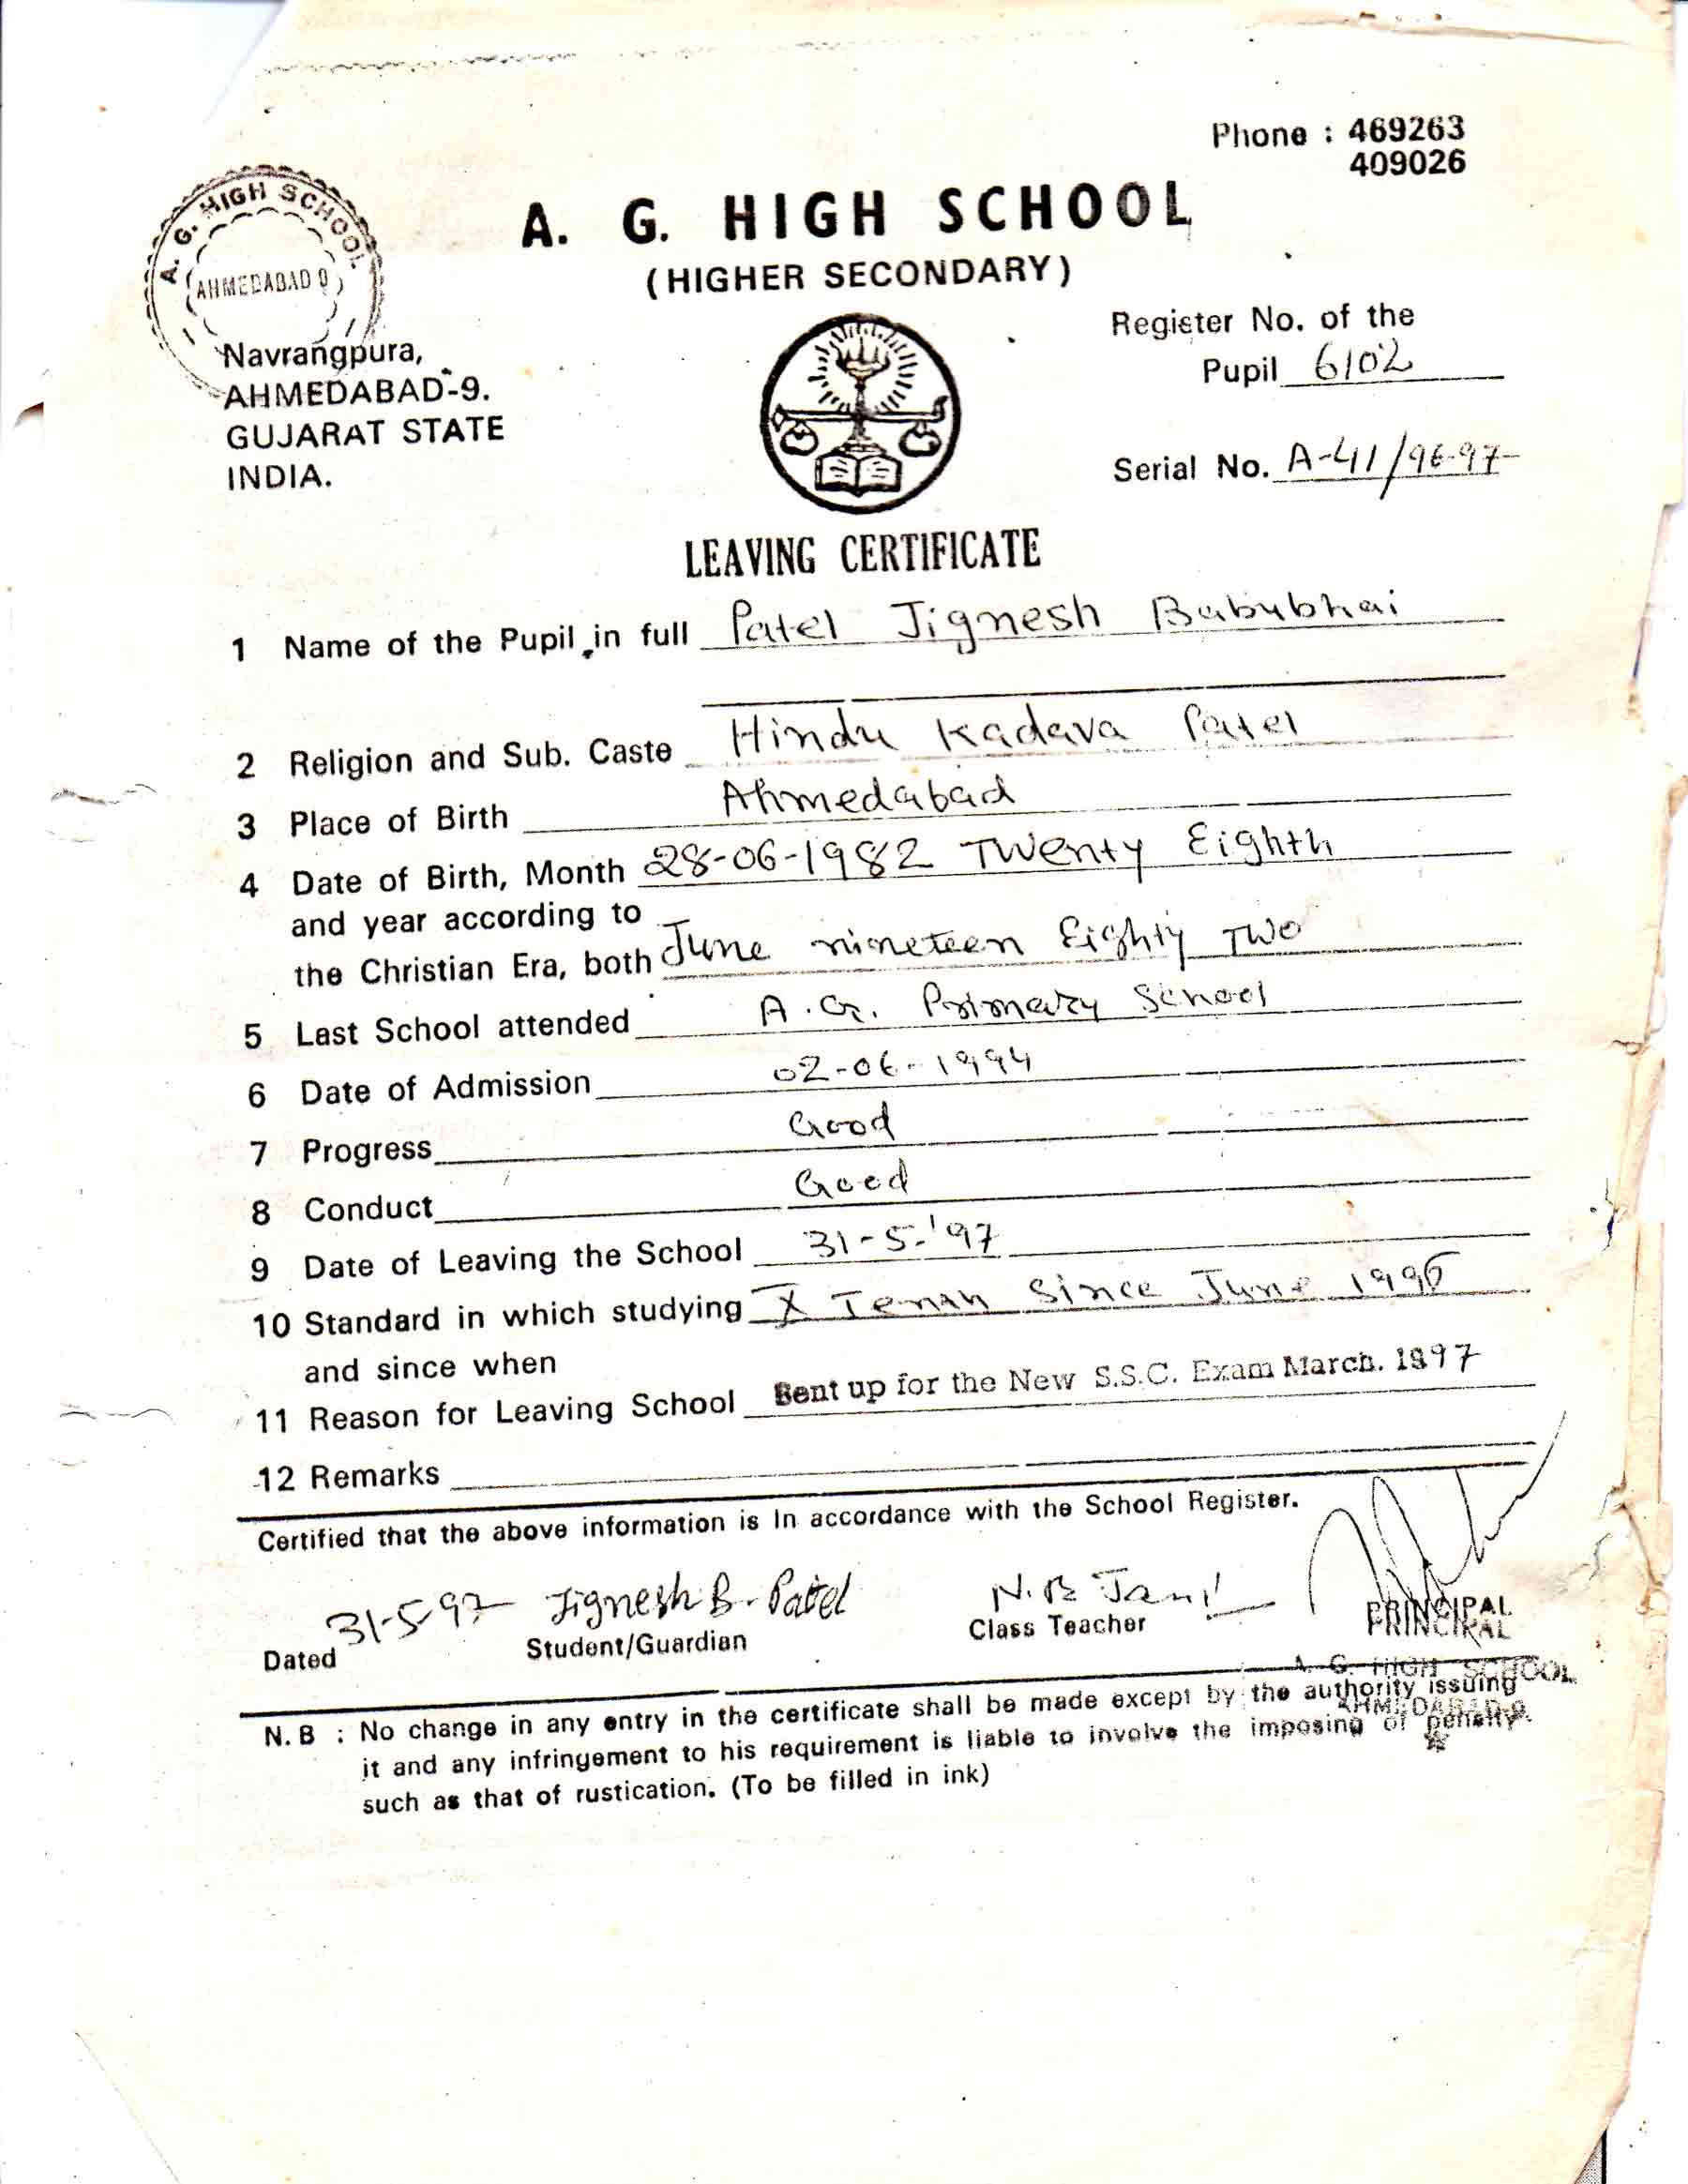 Phone : 469263
409026
A. G. HIGH SCHOOL
AHMEDABAD 9
A. G. HIGH SCHOOL
(HIGHER SECONDARY)
Navrangpura,
AHMEDABAD-9.
GUJARAT STATE
INDIA.
Register No. of the
Pupil 6102
Serial No. A-41/96-97
LEAVING CERTIFICATE
1 Name of the Pupil in full Patel Jignesh Babubhai
2 Religion and Sub. Caste Hindu Kadava Patel
3 Place of Birth Ahmedabad
4 Date of Birth, Month 28-06-1982 Twenty Eighth
and year according to
the Christian Era, both June nineteen Eighty Two
5 Last School attended A.G. Primary School
6 Date of Admission 02-06-1994
7 Progress Good
8 Conduct Good
9 Date of Leaving the School 31-5-'97
10 Standard in which studying X Tenth Since June 1996
and since when
11 Reason for Leaving School Sent up for the New S.S.C. Exam March. 1997
12 Remarks
Certified that the above information is In accordance with the School Register.
31-5-97 Jignesh B. Patel N.B Jani
Dated Student/Guardian Class Teacher PRINCIPAL
PRINCIPAL
A. G. HIGH SCHOOL
AHMEDABAD-9.
N. B : No change in any entry in the certificate shall be made except by the authority issuing
it and any infringement to his requirement is liable to involve the imposing of penalty
such as that of rustication. (To be filled in ink)